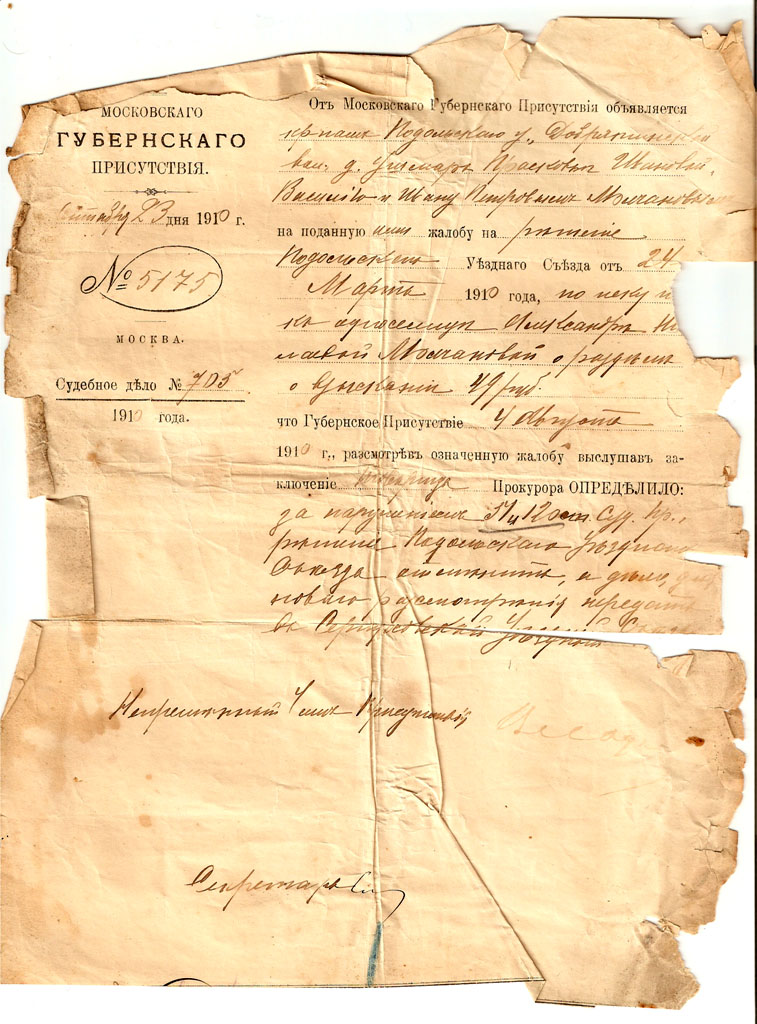 МОСКОВСКАГО
ГУБЕРНСКАГО
ПРИСУТСТВІЯ.
23 дня 1910 г.
№ 5175
МОСКВА.
Судебное дѣло № 705
1910 года.
Отъ Московскаго Губернскаго Присутствія объявляется
Подольскаго у.,
вол. д. Прасковьѣ Ивановой,
Василію и Ивану Петровымъ Молчановымъ
на поданную ими жалобу на рѣшеніе
Подольскаго Уѣзднаго Съѣзда отъ 24
Марта 1910 года, по иску
Александры
Молчановой о раздѣлѣ
о взысканіи 49 руб.
что Губернское Присутствіе 4 Августа
1910 г., разсмотрѣвъ означенную жалобу выслушавъ за-
ключеніе товарища Прокурора ОПРЕДѢЛИЛО:
за нарушеніемъ 51 и 120 ст. Суд. Пр.,
рѣшеніе Подольскаго Уѣзднаго
Съѣзда отмѣнить, а дѣло для
новаго разсмотрѣнія передать
въ Серпуховской Уѣздный
Непремѣнный Членъ Присутствія
Секретарь